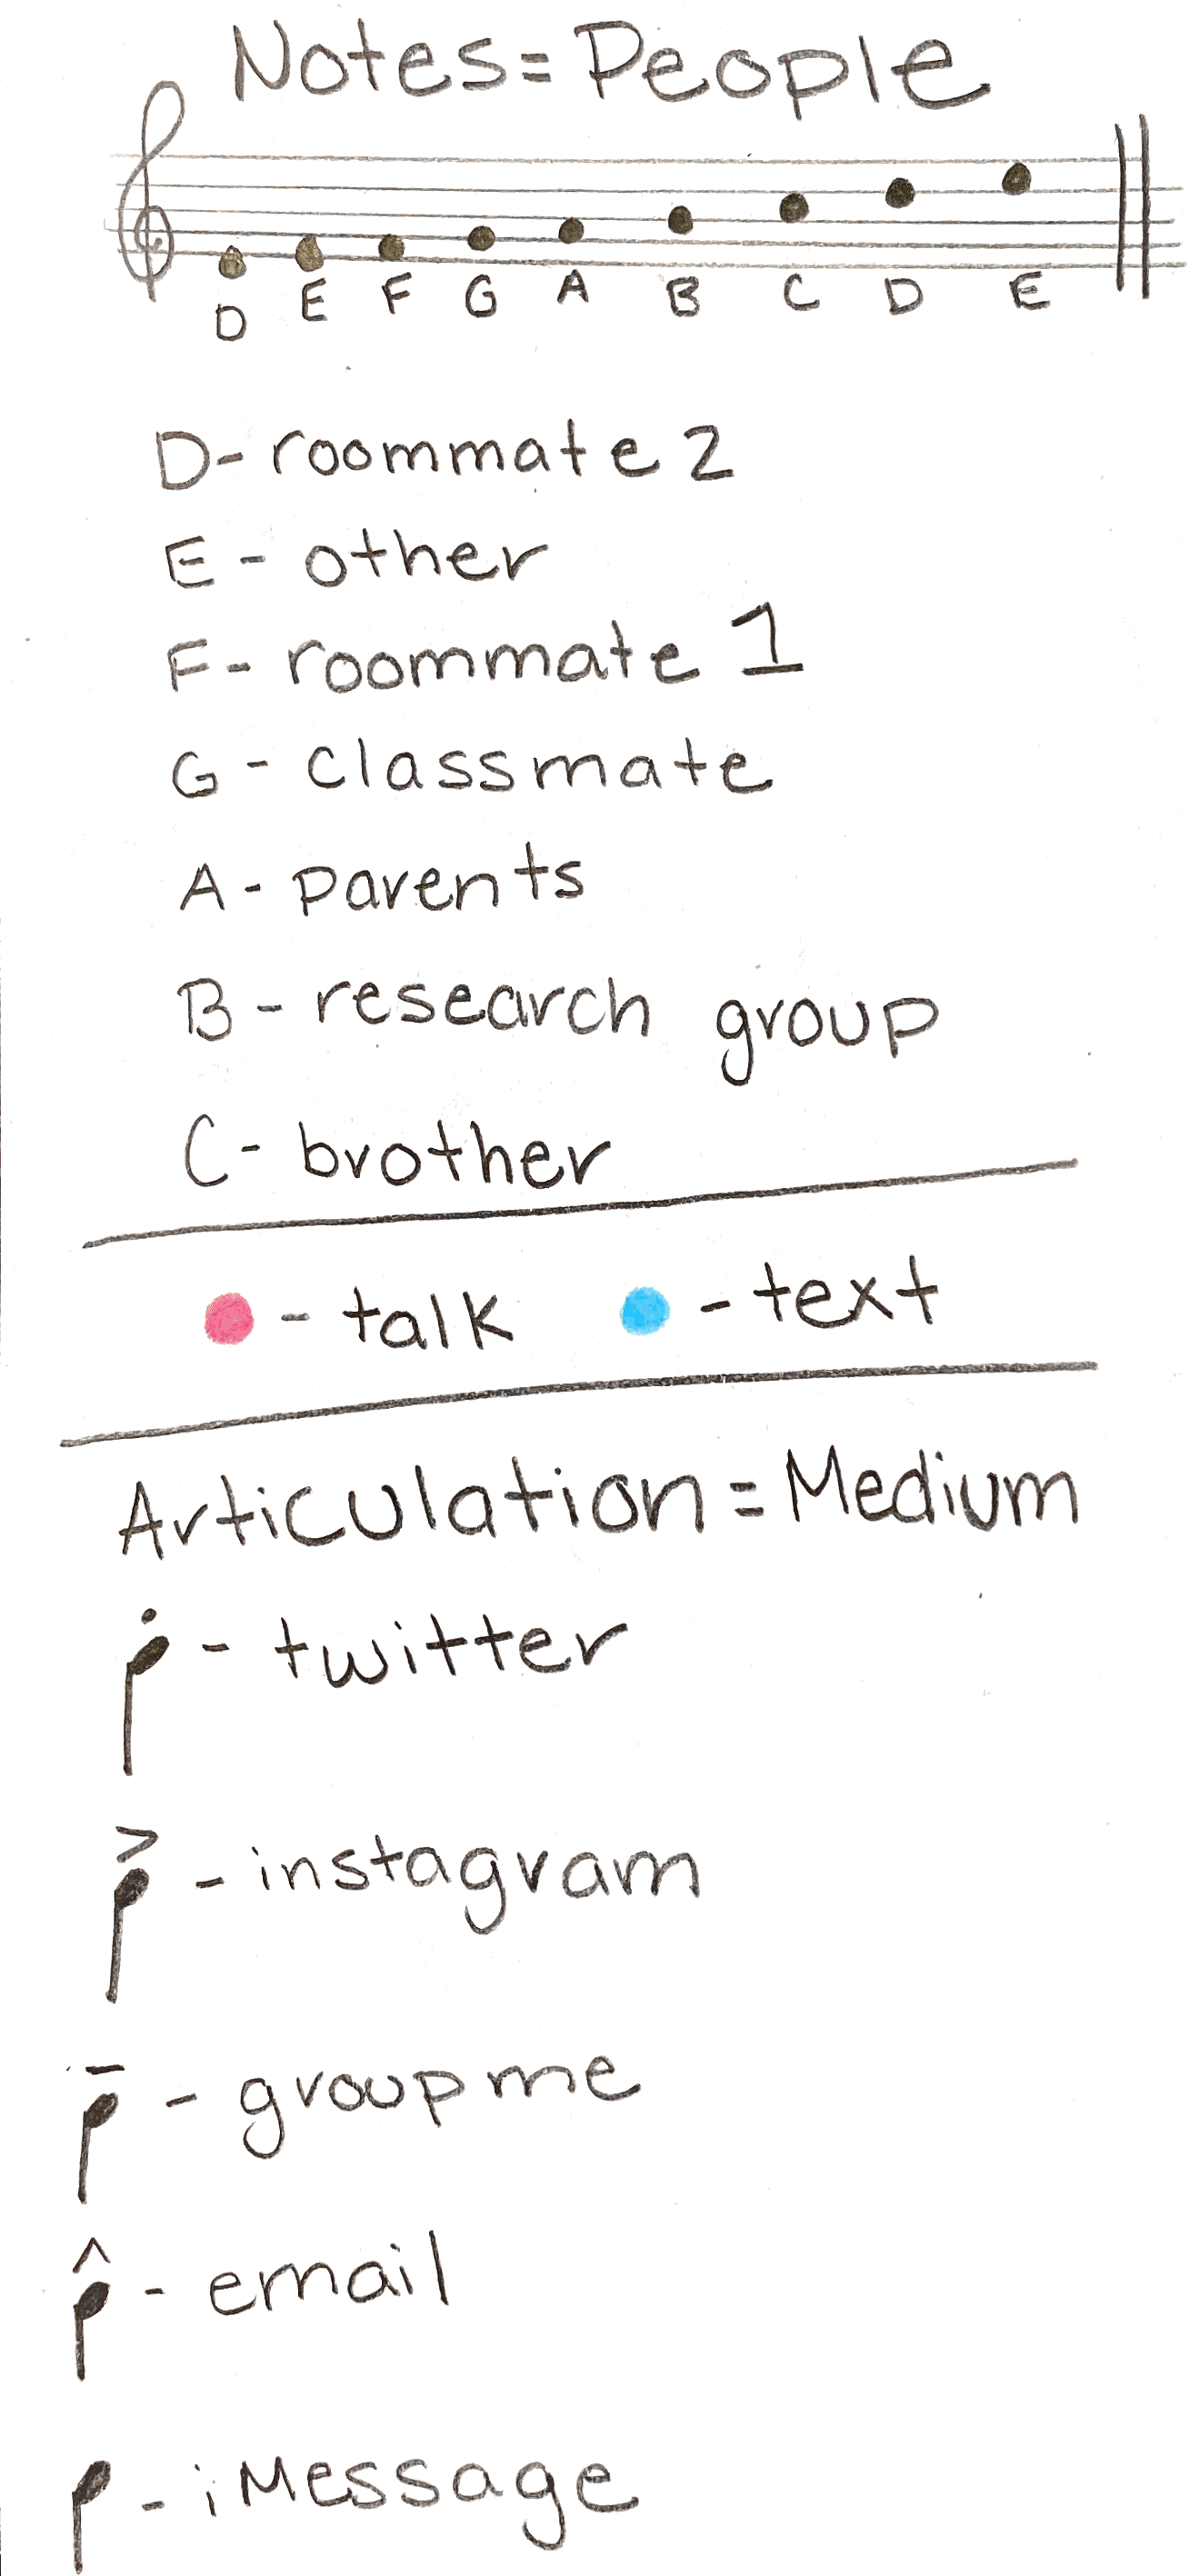 Notes=People
D E F G A B C D E
D- roommate 2
E - other
F- roommate 1
G - classmate
A - parents
B - research group
C- brother
- talk - text
Articulation = Medium
- twitter
- instagram
- groupme
- email
- iMessage